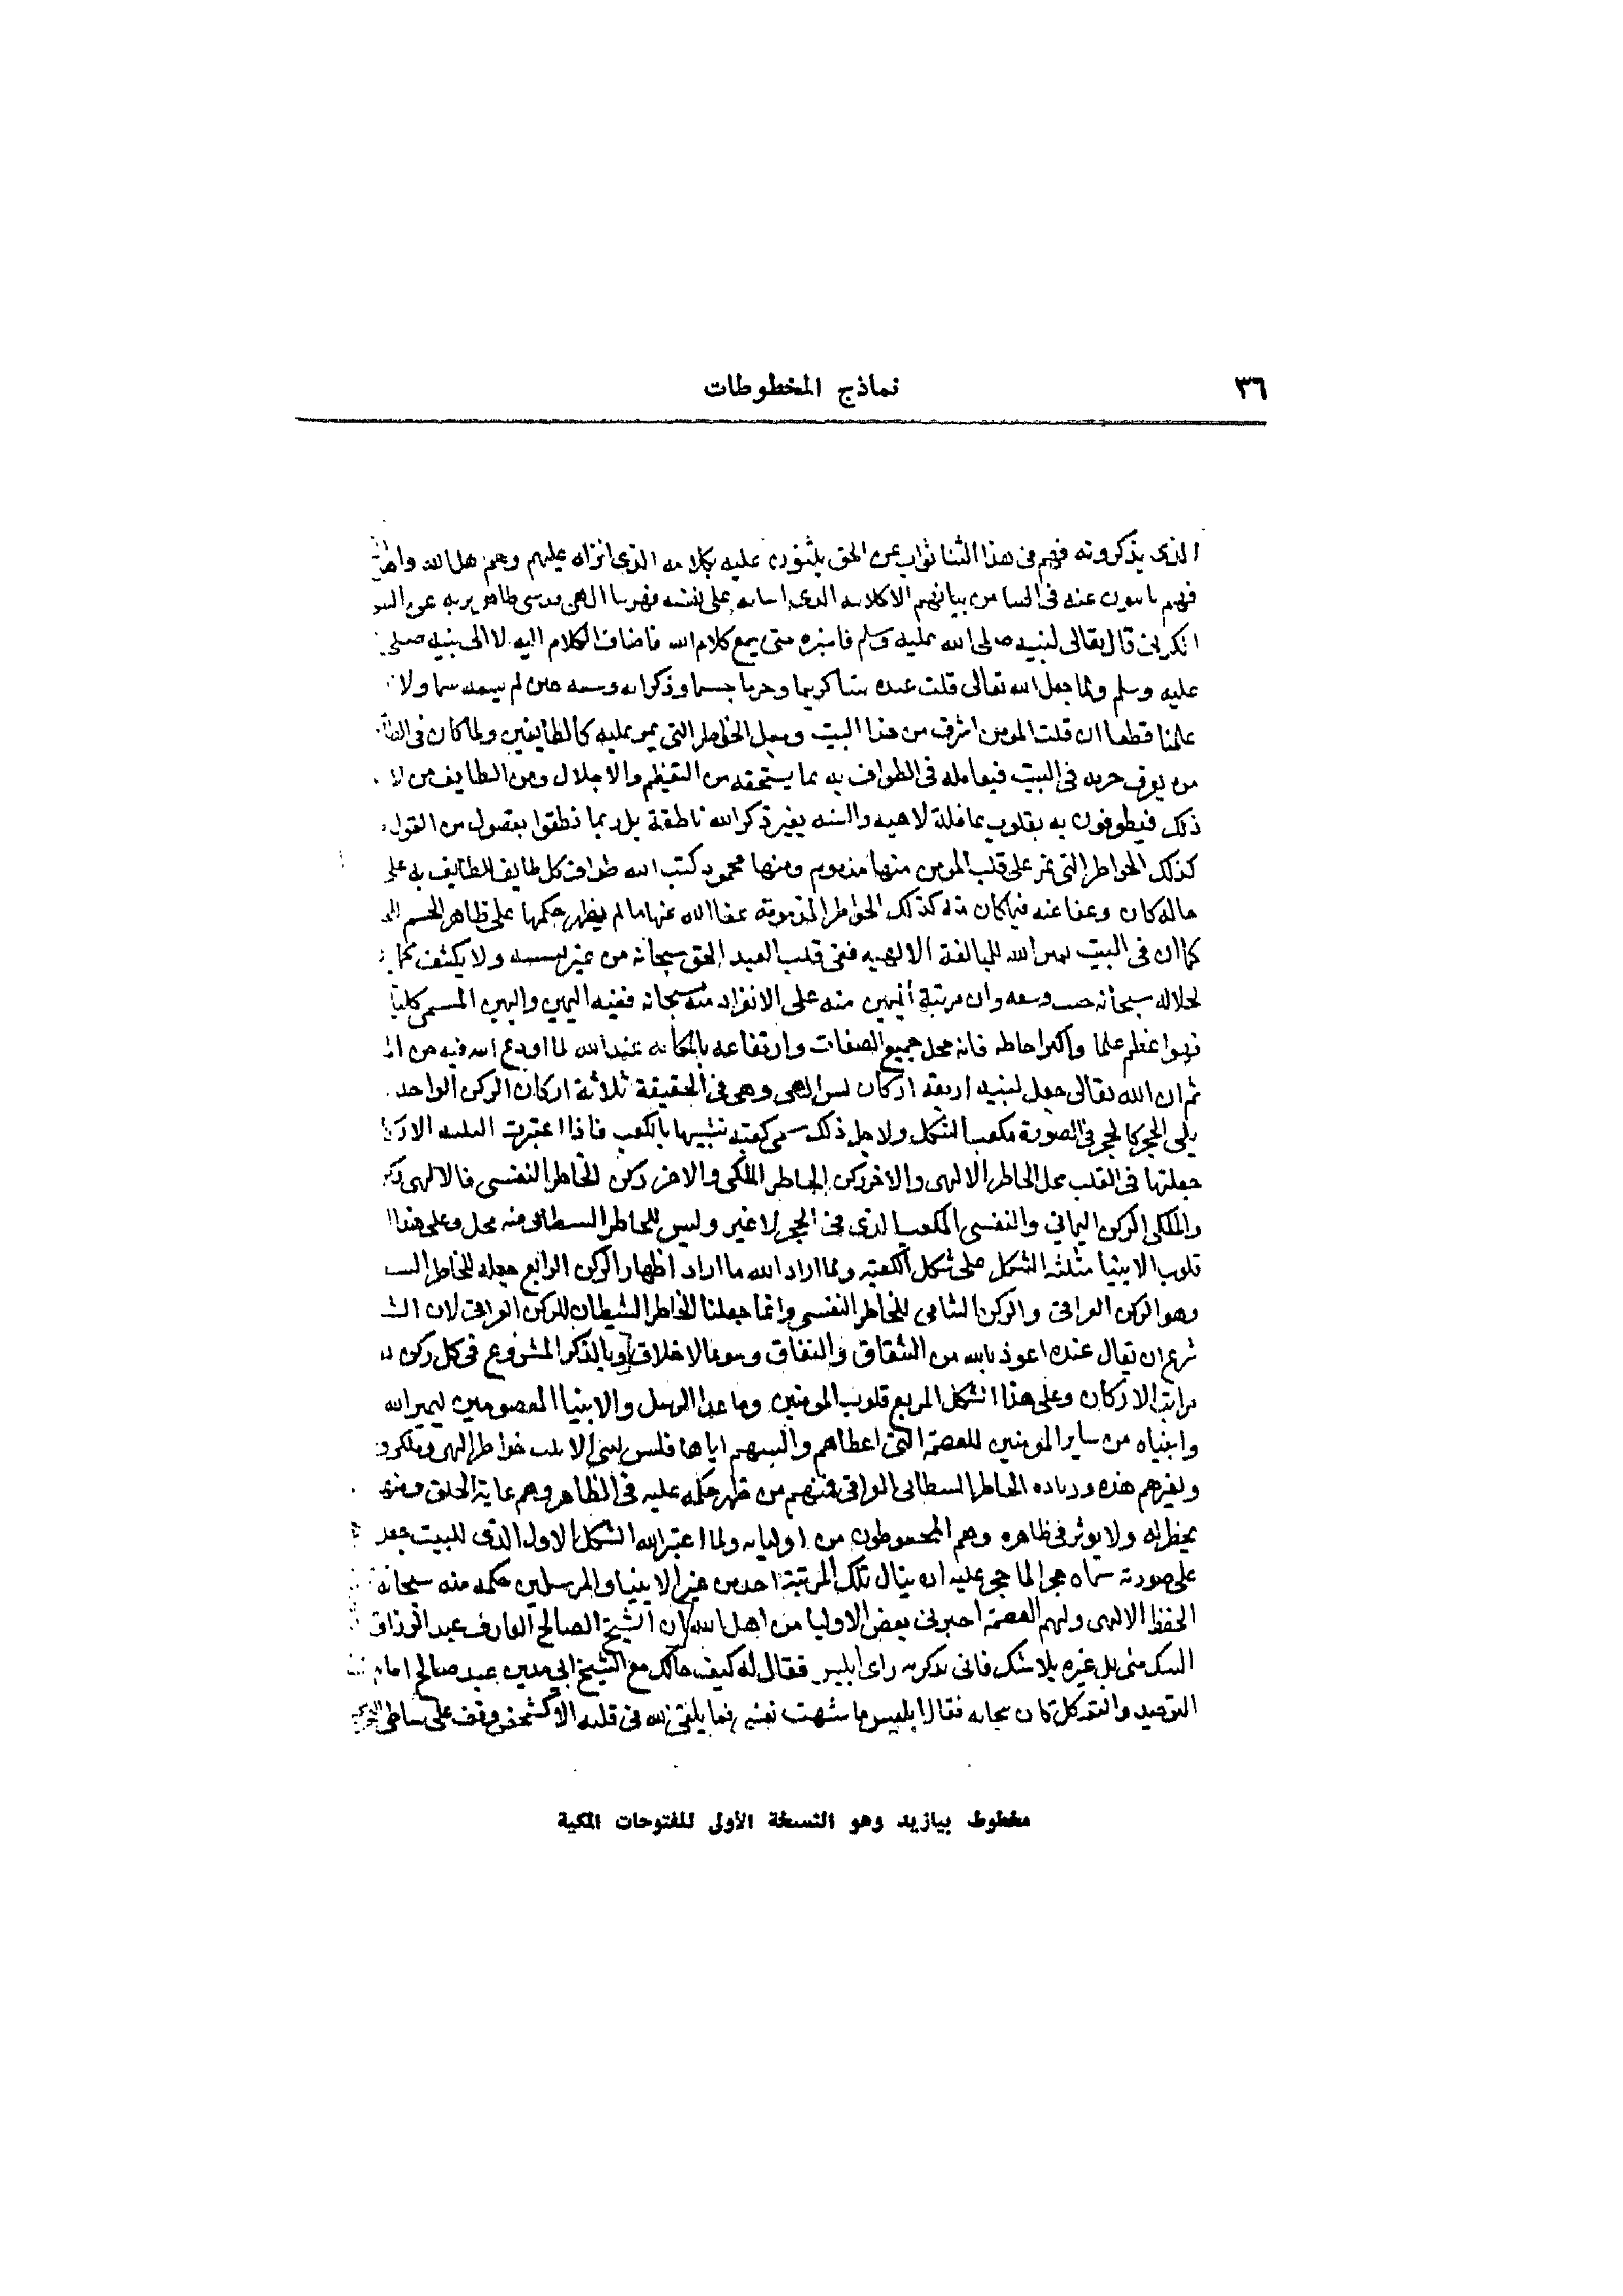 ٣٦
نماذج المخطوطات
الذى يذكرونه فهم فى هذا الثنا نواب عن الحق يثنون عليه بكلامه الذى انزله عليهم وهم هل الله واهل
فهم عنه فى من الا كلامه الذى على نفسه فهو عن
قال تعالى لنبيه صلى الله عليه وسلم فاجره حتى يسمع كلام الله فاضاف الكلام اليه لا الى نبيه صلى
عليه وسلم ولما جعل الله تعالى قلب عبده بيتا كريما وحرما جسيما وذكر انه وسعه حين لم يسعه سما ولا
علمنا قطعا ان قلب المومن اشرف من هذا البيت وجعل الخواطر التى تمر عليه كالطايفين ولما كان فى
من يعرف حرمه فى البيت فيعامله فى الطواف به بما يستحقه من التعظيم والاجلال ومن الطايف من لا
ذلك فيطوفون به بقلوب غافلة لاهيه والسنه بغير ذكر الله ناطقة بل ربما نطقوا بفضول من القول
كذلك الخواطر التى تمر على قلب المومن منها مذموم ومنها محمود كتب الله طواف كل طايف للطايف به على
حاله كان وعفا عنه فيما كان منه كذلك الخواطر المذمومة عفا الله عنها ما لم يظهر حكمها على ظاهر الجسم
كما ان فى البيت يمين الله للمبالغة الالهيه ففى قلب العبد الحق سبحانه من غير ولا
لجلاله سبحانه حيث وسعه واين مرتبة اليمين منه على الانفراد منه سبحانه ففيه اليمين واليمين المسمى كلتا
فهو اعظم علما واكبر احاطه فانه محل جميع الصفات وارتفاعه بالمكانه عند الله لما اودع الله فيه من
ثم ان الله تعالى جعل لبيته اربعة اركان لسر الهى وهى فى الحقيقة ثلاثة اركان الركن الواحد
يلى الحجر كالحجر فى الصورة مكعب الشكل ولاجل ذلك سمى كعبة تشبيها بالكعب فاذا اعتبرت الثلثه
جعلتها فى القلب محل الخاطر الالهى والاخر ركن الخاطر الملكى والاخر ركن الخاطر النفسى فالالهى
والملكى الركن اليمانى والنفسى المكعب الذى فى الحجر لا غير وليس للخاطر الشيطانى فيه محل وعلى هذا
قلوب الانبيا مثلثة الشكل على شكل الكعبة ولما اراد الله ما اراد اظهار الركن الرابع جعله للخاطر
وهو الركن العراقى والركن الشامى للخاطر النفسى وانما جعلنا الخاطر الشيطان للركن العراقى لان
شرع ان يقال عنده اعوذ بالله من الشقاق والنفاق وسوء الاخلاق وبالذكر المشروع فى كل ركن
مراتب الاركان وعلى هذا الشكل المربع قلوب المومنين وما عدا الرسل والانبيا المعصومين ليميز الله
وانبياه من ساير المومنين للعصمة التى اعطاهم والبسهم اياها فليس لنبى الا ثلث خواطر الهى وملكى
ولغيرهم هذه وزياده الخاطر الشيطانى العراقى فمنهم من ظهر حكمه عليه فى الظاهر وهم عامة الخلق ومنهم
يخطر له ولا يوثر فى ظاهره وهم المحفوظون من اوليايه ولما اعتبر الله الشكل الاول الذى للبيت جعل
على صورته سماه حجرا لما حجر عليه ان ينال تلك المرتبة احد من غير الانبيا والمرسلين حكمه منه سبحانه
الحفظ الالهى ولهم العصمة اخبرنى بعض الاوليا من اهل الله ان الشيخ الصالح العارف عبد الرزاق
منى بل غيره بلا شك فانى راى ابليس فقال له كيف حالك مع الشيخ ابى مدين عبد صالح امام
التوحيد والتوكل كان فقال ابليس ما شبهت نفسى فيما يلقى له فى قلبه الا كشخص وقف على شاطى
مخطوط بيازيد وهو النسخة الأولى للفتوحات المكية